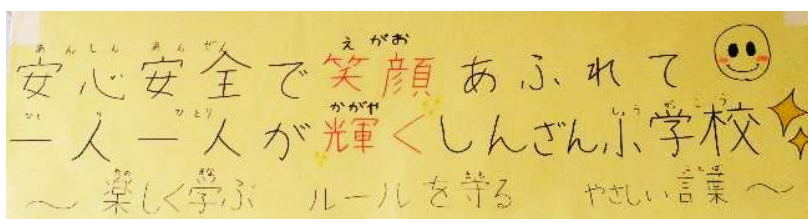 あんしん あんぜん えがお
安心安全で笑顔あふれて
ひとり ひとり かがや しょうがっこう
一人一人が輝くしんざん小学校
たの まな まも ことば
～ 楽しく学ぶ ルールを守る やさしい言葉 ～